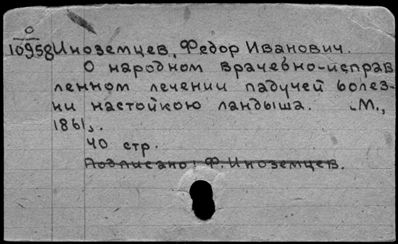 0
10958 Иноземцев, Федор Иванович.
О народном врачевно-исправ
ленном лечении падучей болез-
ни настойкою ландыша. М.,
1861.
40 стр.
Подписано: Ф. Иноземцев.